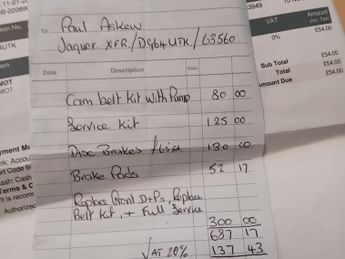 11-01-2
3949
TOTNO
VAT
Amount
0%
£54.00
Sub Total
£54.00
Total
£54.00
Amount Due
£54.00
UTK
MOT
MOT
To Paul Askew
Jaquer XFR/DS64 UTK/63560
Date Description
Cam belt kit with Pump 80 00
Service Kit 125 00
Disc Brakes 130 00
Brake Pads 52 17
Replace Front D+Ps, Replace
Belt Kit, + Full Service
300 00
687 17
VAT 20% 137 43
Cash: Cash
Terms &
Authorized